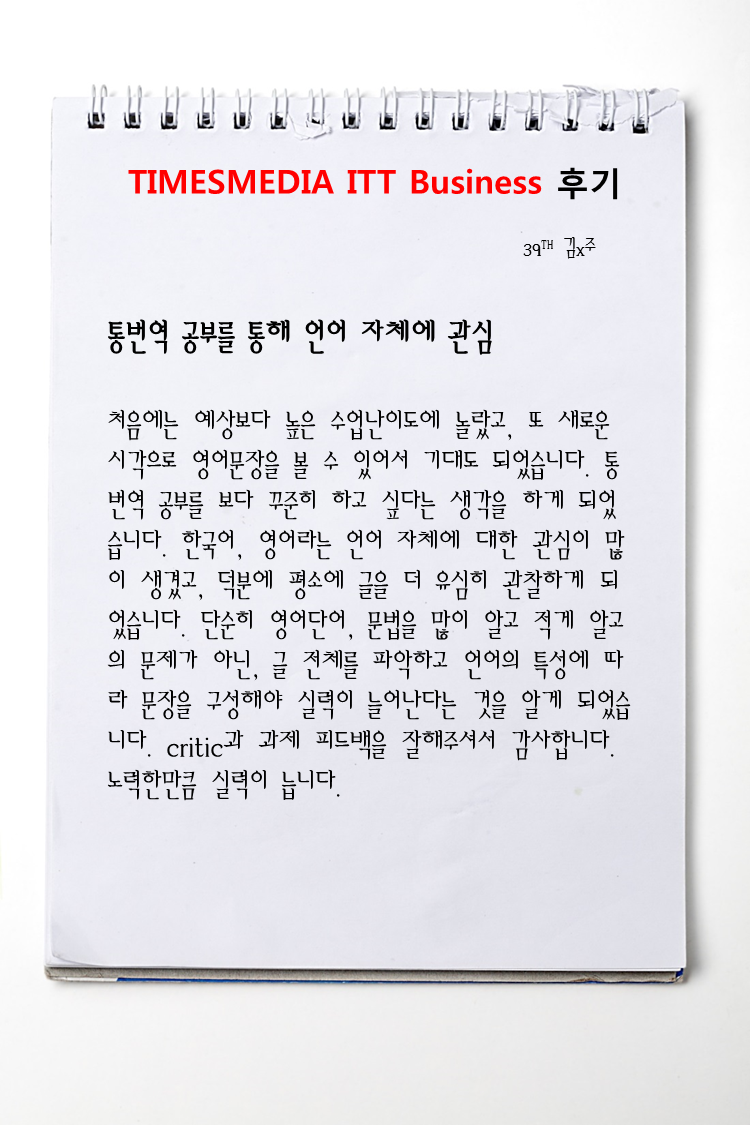 TIMESMEDIA ITT Business 후기
39TH 김x주
통번역 공부를 통해 언어 자체에 관심
처음에는 예상보다 높은 수업난이도에 놀랐고, 또 새로운
시각으로 영어문장을 볼 수 있어서 기대도 되었습니다. 통
번역 공부를 보다 꾸준히 하고 싶다는 생각을 하게 되었
습니다. 한국어, 영어라는 언어 자체에 대한 관심이 많
이 생겼고, 덕분에 평소에 글을 더 유심히 관찰하게 되
었습니다. 단순히 영어단어, 문법을 많이 알고 적게 알고
의 문제가 아닌, 글 전체를 파악하고 언어의 특성에 따
라 문장을 구성해야 실력이 늘어난다는 것을 알게 되었습
니다. critic과 과제 피드백을 잘해주셔서 감사합니다.
노력한만큼 실력이 늡니다.